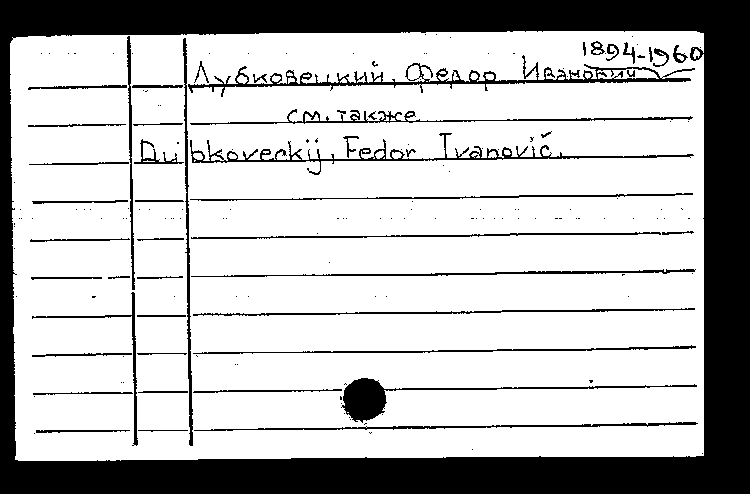 1894-1960
Дубковецкий, Федор Иванович
см. также
Dubkoveckij, Fedor Ivanovič.